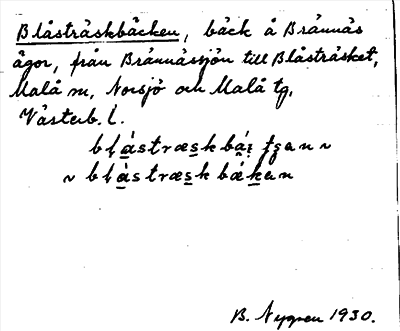 Blåsträskbäcken, bäck å Brännäs
ägor, från Brännässjön till Blåsträsket,
Malå m, Norsjö och Malå tg,
Västerb. l.
blástræsk bái̭ tʂan ~
~ blástræsk bákan
B. Nygren 1930.